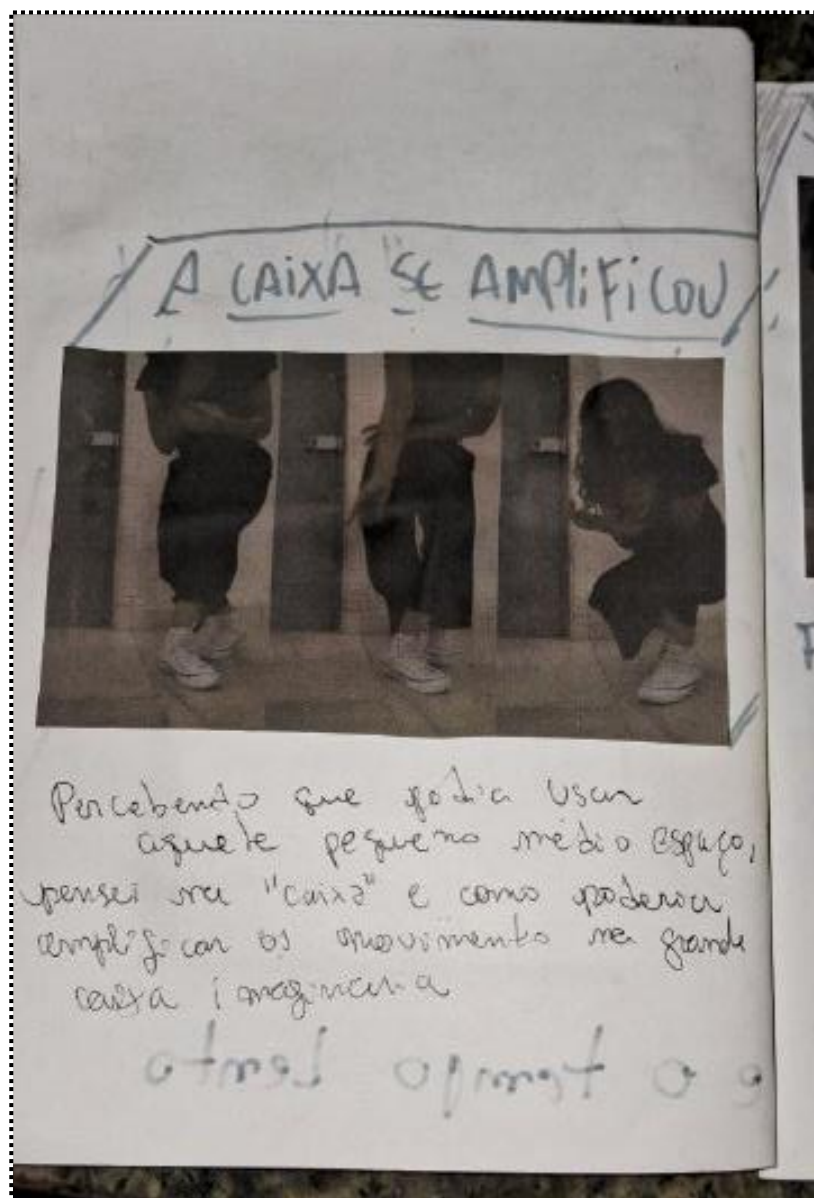 A CAIXA SE AMPLIFICOU
Percebendo que podia usar
aquele pequeno médio espaço,
pensei na "caixa" e como poderia
amplificar os movimento na grande
caixa imaginaria
e o tempo lento